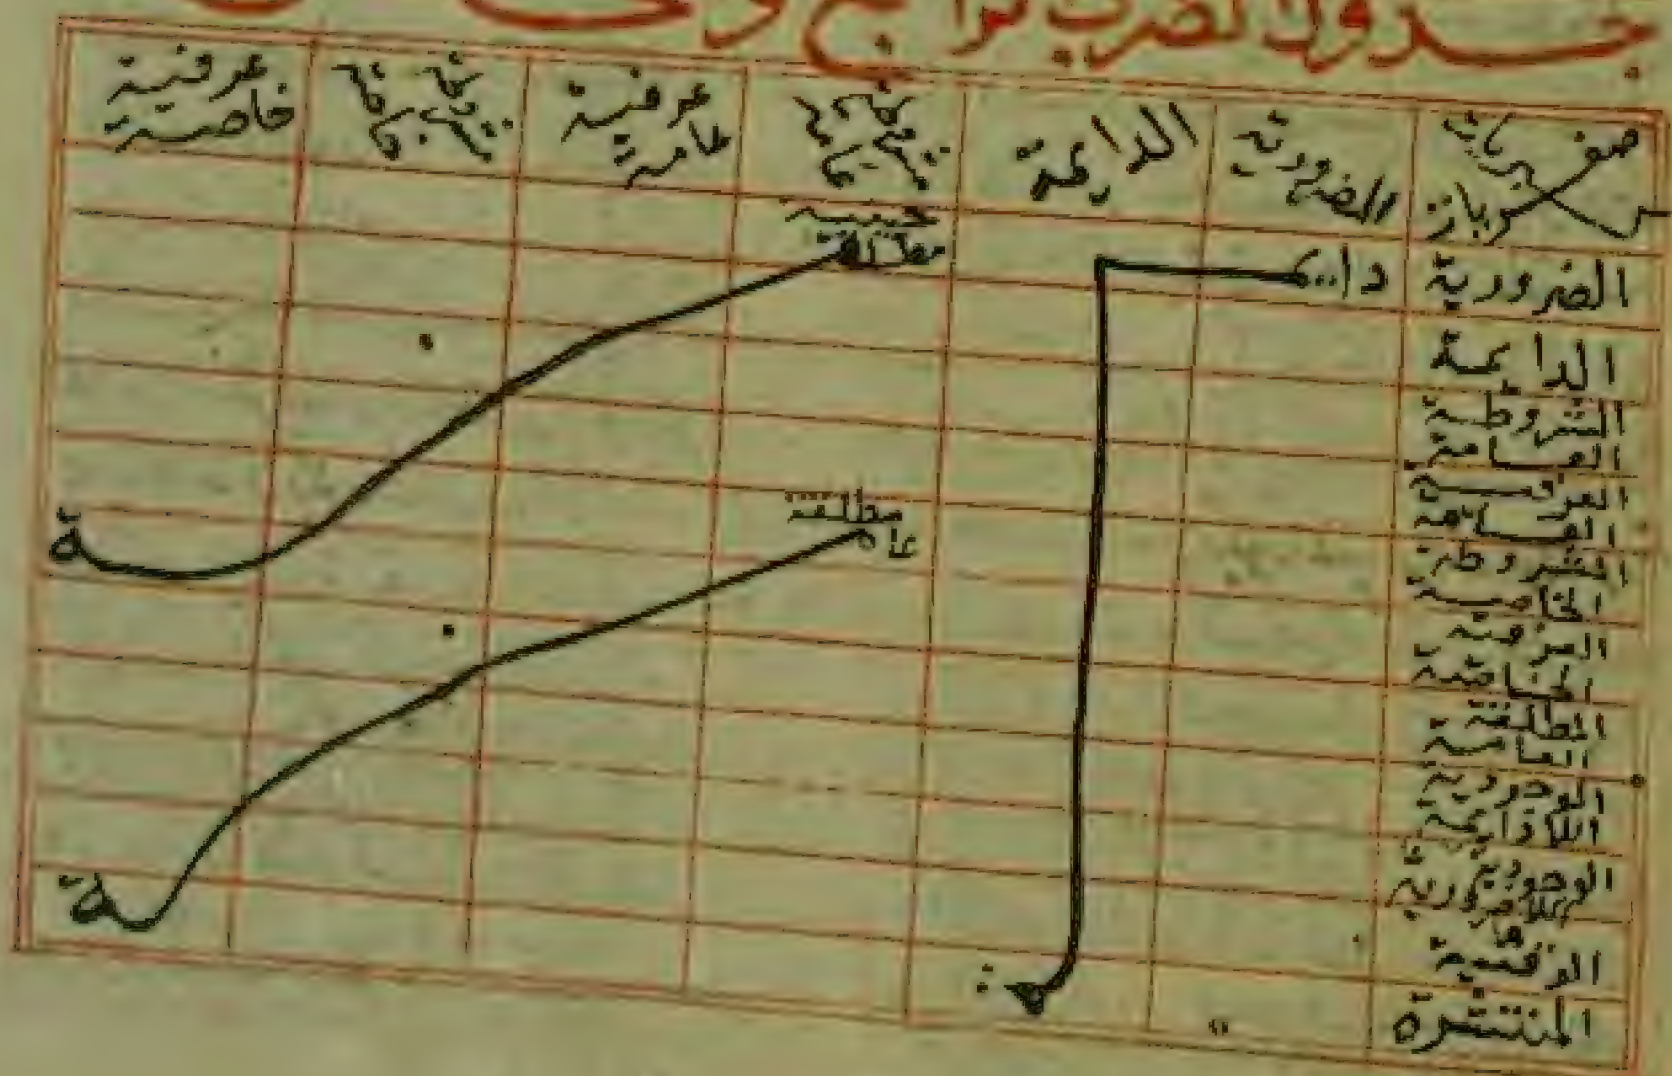 جدول الضرب الرابع
صغريات
كبريات
الضرورية
الدايمة
مشروطة عامة
عرفية
عامة
مشروطة خاصة
عرفية
خاصية
الضرورية
دايمة
حينية
مطلقة
الدايمة
المشروطة
العامة
العرفية
العامة
المشروطة
الخاصية
مطلقة
عامة
العرفية
الخاصية
المطلقة
العامة
الوجودية
اللادايمة
الوجودية
اللاضرورية
الوقتية
المنتشرة